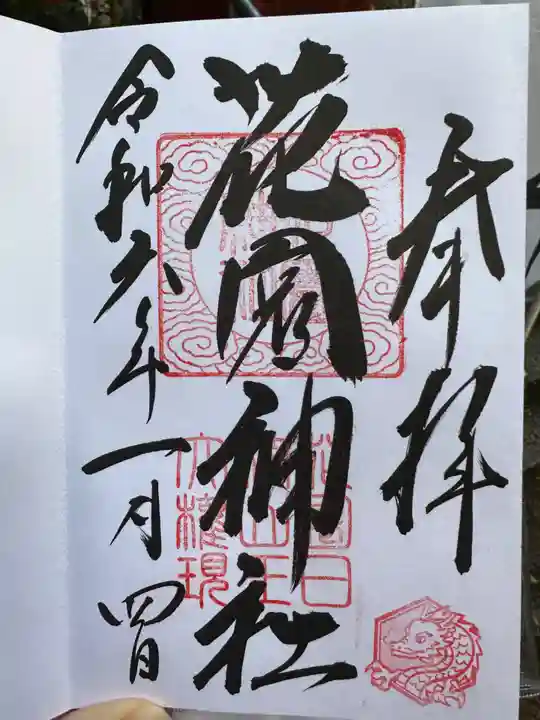 奉拝
花園神社
令和六年一月四日
大権現